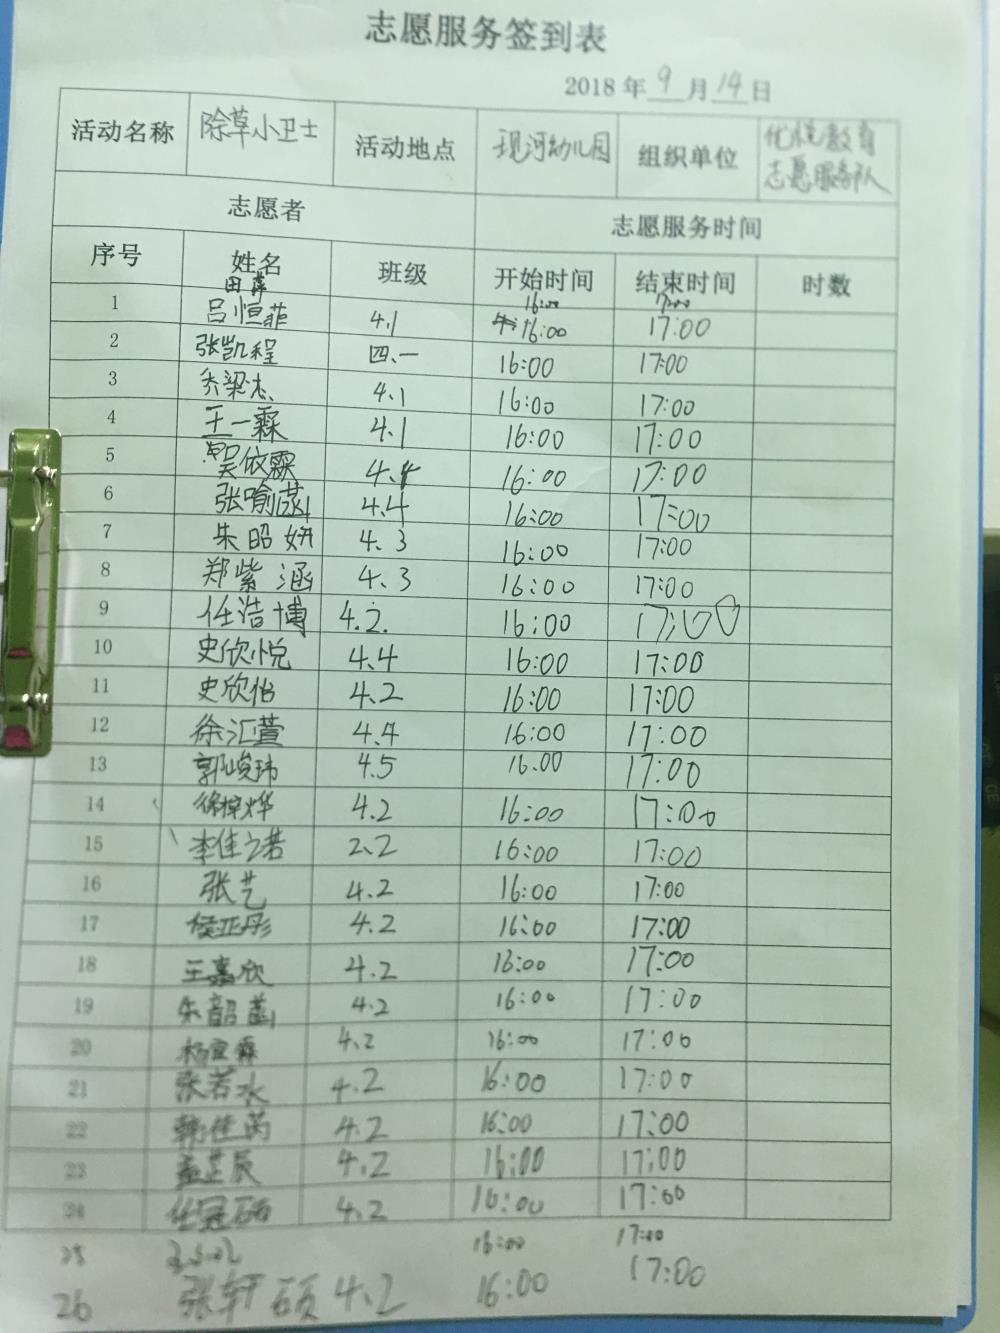 志愿服务签到表
2018 年 9 月 14 日
活动名称 除草小卫士 活动地点 现河幼儿园 组织单位 优悦教育志愿服务队
志愿者 志愿服务时间
序号 姓名 班级 开始时间 结束时间 时数
田萍 16:00 17:00
1 吕恒菲 4.1 16:00 17:00
2 张凯程 四、一 16:00 17:00
3 乔梁杰 4.1 16:00 17:00
4 王一霖 4.1 16:00 17:00
5 吴依霖 4.4 16:00 17:00
6 张喻涵 4.4 16:00 17:00
7 朱昭妍 4.3 16:00 17:00
8 郑紫涵 4.3 16:00 17:00
9 任浩博 4.2. 16:00 17:00
10 史欣悦 4.4 16:00 17:00
11 史欣怡 4.2 16:00 17:00
12 徐汇萱 4.4 16:00 17:00
13 郭峻玮 4.5 16:00 17:00
14 徐梓烨 4.2 16:00 17:00
15 李佳之若 2.2 16:00 17:00
16 张艺 4.2 16:00 17:00
17 侯亚彤 4.2 16:00 17:00
18 王嘉欣 4.2 16:00 17:00
19 朱韶菡 4.2 16:00 17:00
20 杨宜霖 4.2 16:00 17:00
21 张若水 4.2 16:00 17:00
22 韩佳芮 4.2 16:00 17:00
23 孟芷辰 4.2 16:00 17:00
24 任冠硕 4.2 16:00 17:00
25 16:00 17:00
26 张轩硕 4.2 16:00 17:00